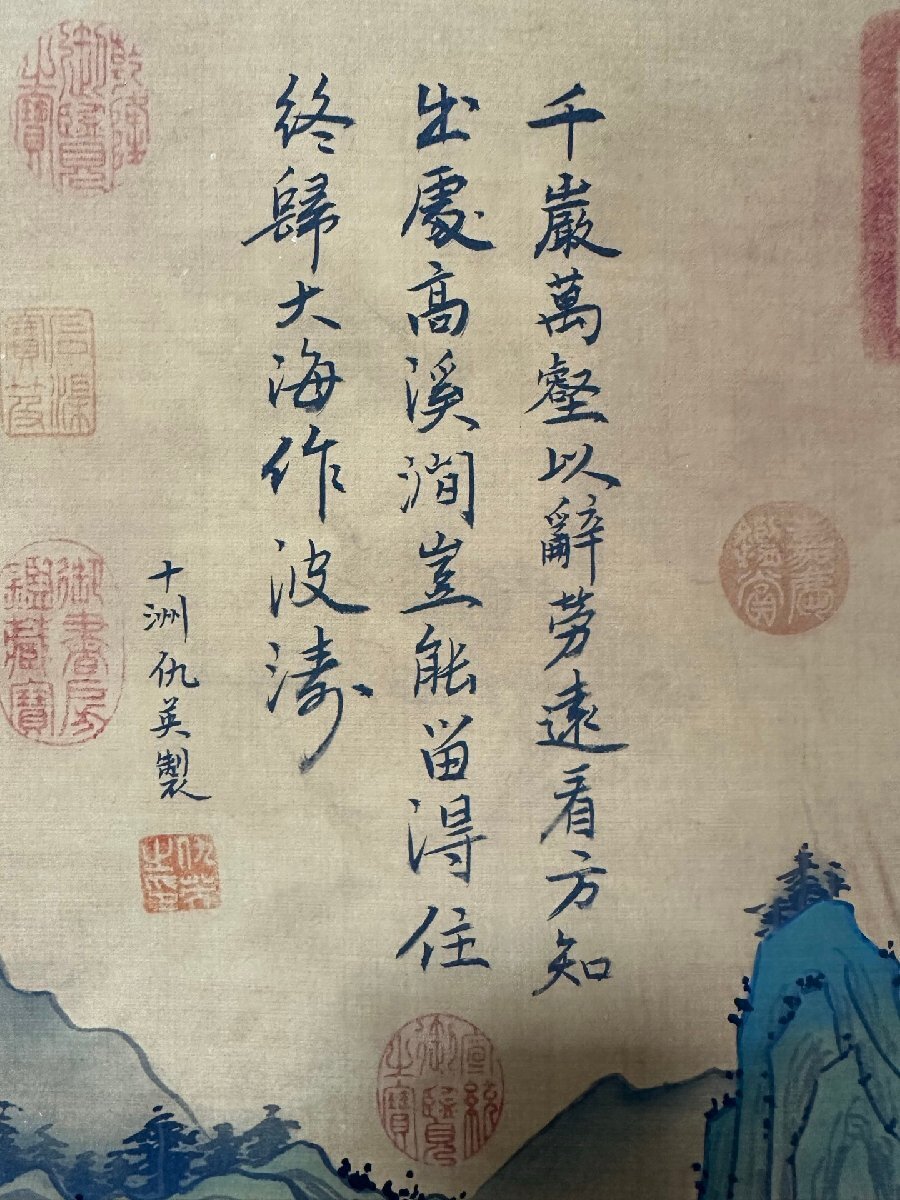 千巖萬壑以辭勞遠看方知
出處高溪澗豈能留得住
終歸大海作波濤
十洲仇英製
仇英之印
乾隆御覽之寶
御書房鑑藏寶
嘉慶鑑賞
宣統御覽之寶